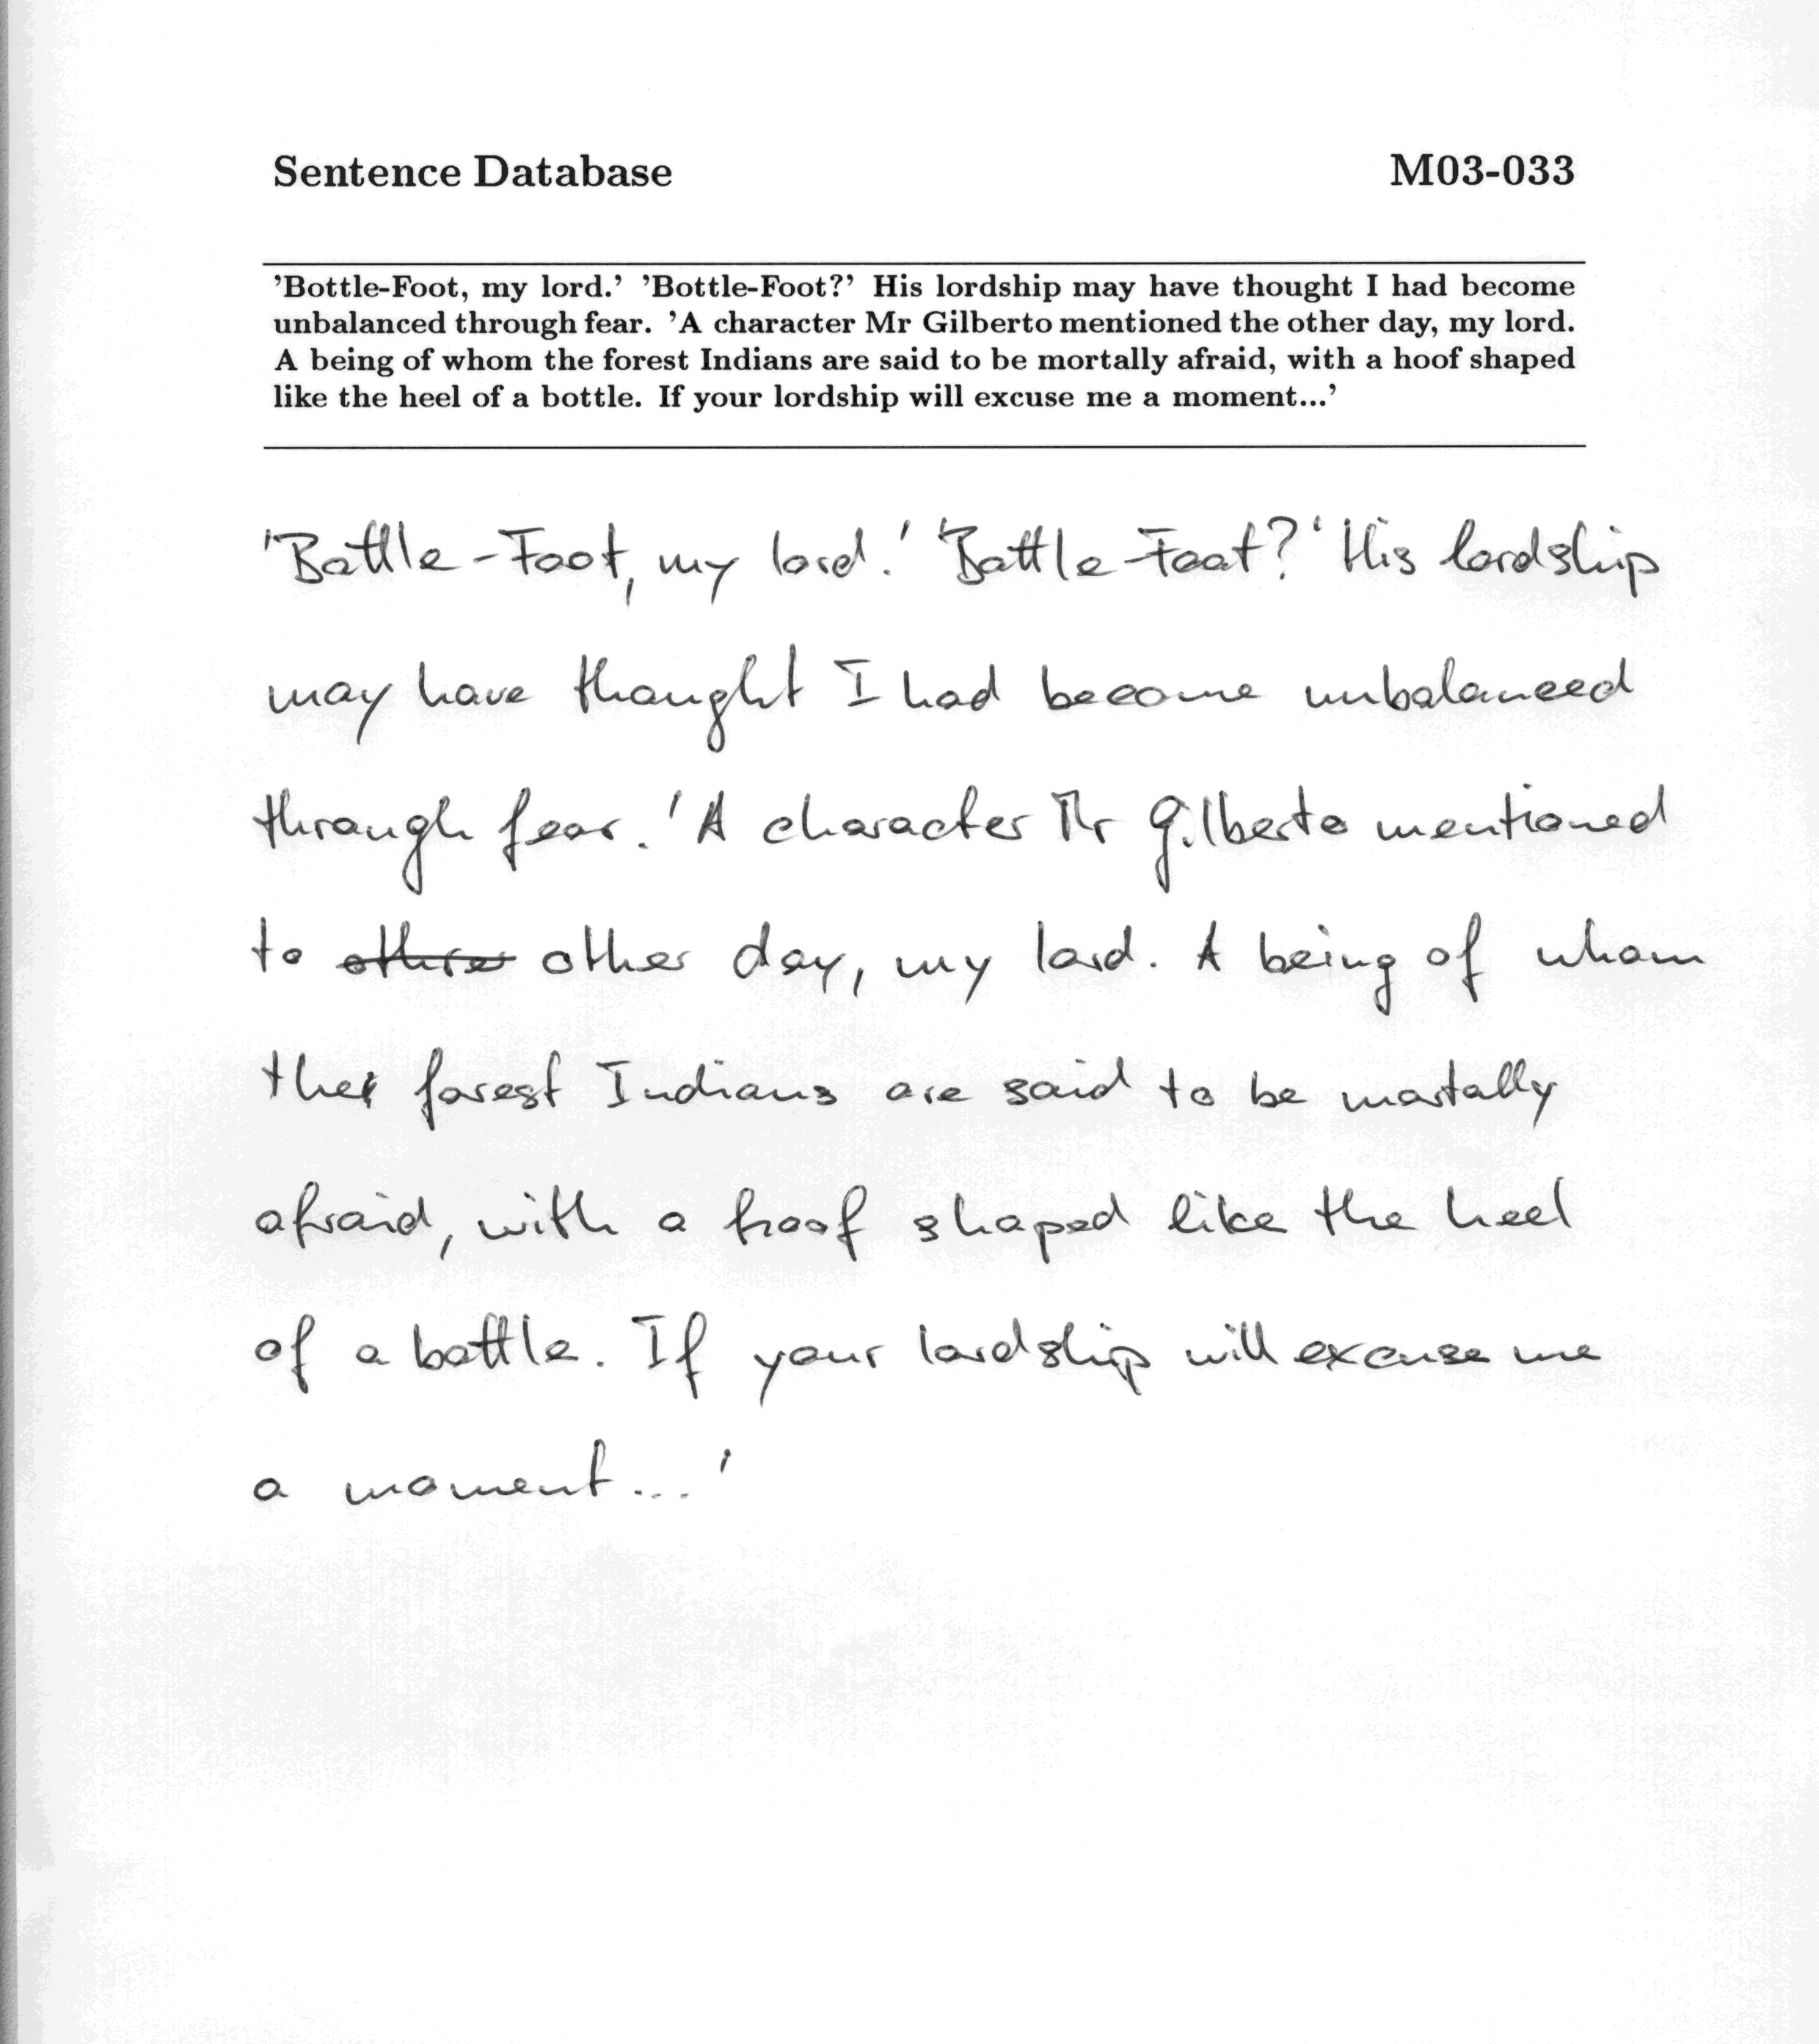 Sentence Database M03-033
'Bottle-Foot, my lord.' 'Bottle-Foot?' His lordship may have thought I had become
unbalanced through fear. 'A character Mr Gilberto mentioned the other day, my lord.
A being of whom the forest Indians are said to be mortally afraid, with a hoof shaped
like the heel of a bottle. If your lordship will excuse me a moment...'
'Bottle-Foot, my lord.' 'Bottle-Foot?' His lordship
may have thought I had become unbalanced
through fear. 'A character Mr Gilberto mentioned
to other day, my lord. A being of whom
the forest Indians are said to be mortally
afraid, with a hoof shaped like the heel
of a bottle. If your lordship will excuse me
a moment...'